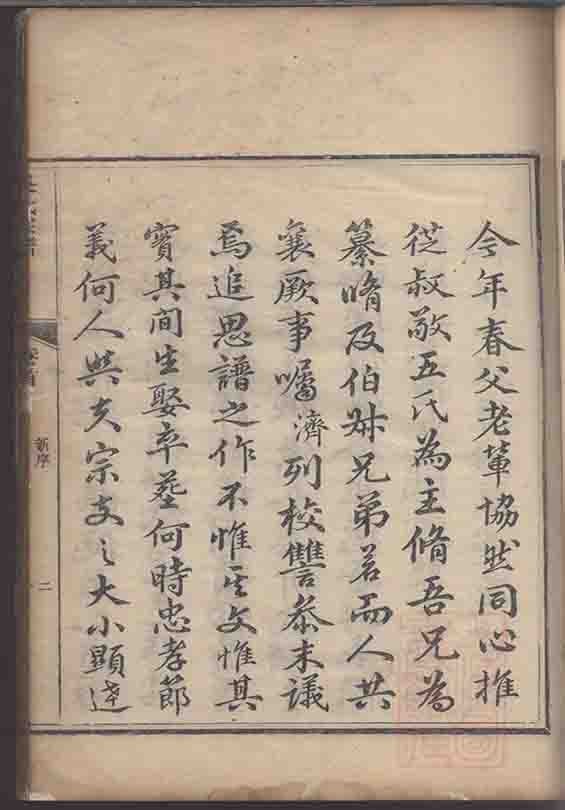 今年春父老輩協然同心推
從叔敬五氏為主脩吾兄為
纂脩及伯叔兄弟若而人共
襄厥事囑濟列校讐參末議
焉追思譜之作不惟其文惟其
實其間生娶卒塟何時忠孝節
義何人與夫宗支之大小顯達
新序
二